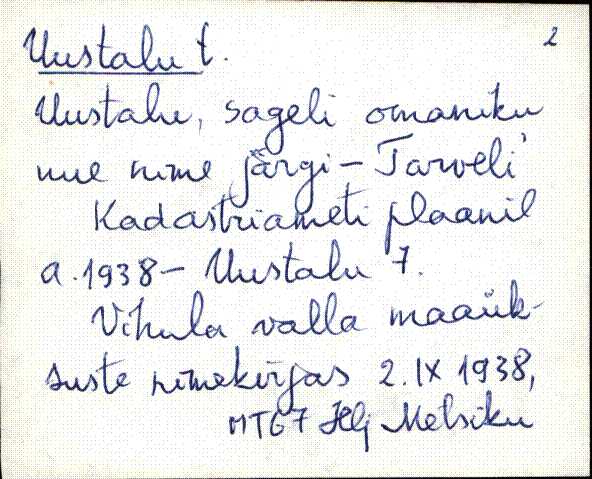 2
Uustalu t.
Uustalu, sageli omaniku
uue nime järgi - Tarveli
Kadastriameti plaanil
a. 1938 - Uustalu 7.
Vihula valla maaük-
suste nimekirjas 2. IX 1938,
MT67 Metsiku